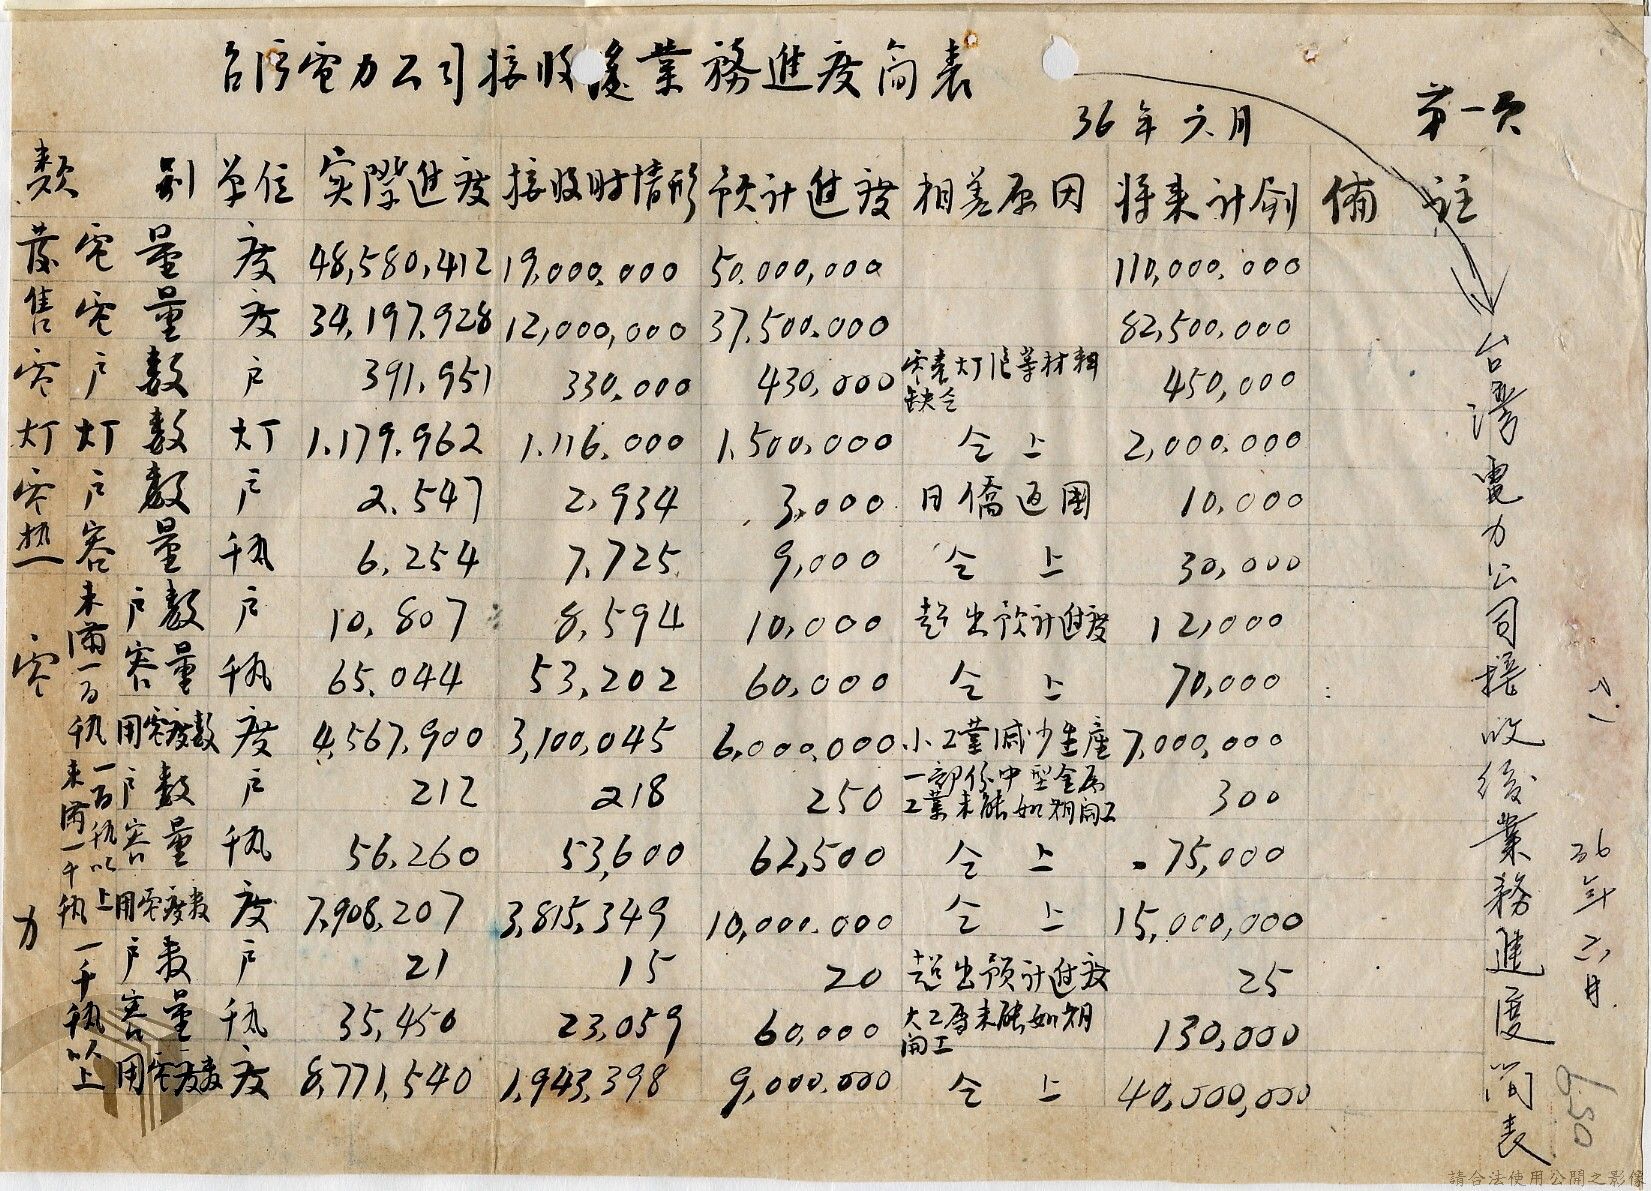 台湾電力公司接收後業務進度简表
36年六月
第一页
類別 单位 实際進度 接收时情形 预计進度 相差原因 将来计劃 備註
發電量 度 48,580,412 19,000,000 50,000,000 110,000,000
售電量 度 34,197,928 12,000,000 37,500,000 82,500,000
電灯 户數 户 391,951 330,000 430,000 電表灯泡等材料缺乏 450,000
灯數 灯 1,179,962 1,116,000 1,500,000 仝上 2,000,000
電热 户數 户 2,547 2,934 3,000 日僑返國 10,000
容量 千瓩 6,254 7,725 9,000 仝上 30,000
電力 未滿一百千瓩 户數 户 10,807 8,594 10,000 超出预计進度 12,000
容量 千瓩 65,044 53,202 60,000 仝上 70,000
用電度數 度 4,567,900 3,100,045 6,000,000 小工業減少生產 7,000,000
一百千瓩以上未滿一千千瓩 户數 户 212 218 250 一部份中型金属工業未能如期開工 300
容量 千瓩 56,260 53,600 62,500 仝上 75,000
用電度数 度 7,908,207 3,815,349 10,000,000 仝上 15,000,000
一千千瓩以上 户数 户 21 15 20 超出预计進度 25
容量 千瓩 35,450 23,059 60,000 大工厂未能如期開工 130,000
用電度数 度 8,771,540 1,943,398 9,000,000 仝上 40,000,000
台灣電力公司接收後業務進度簡表
36年六月
650
請合法使用公開之影像